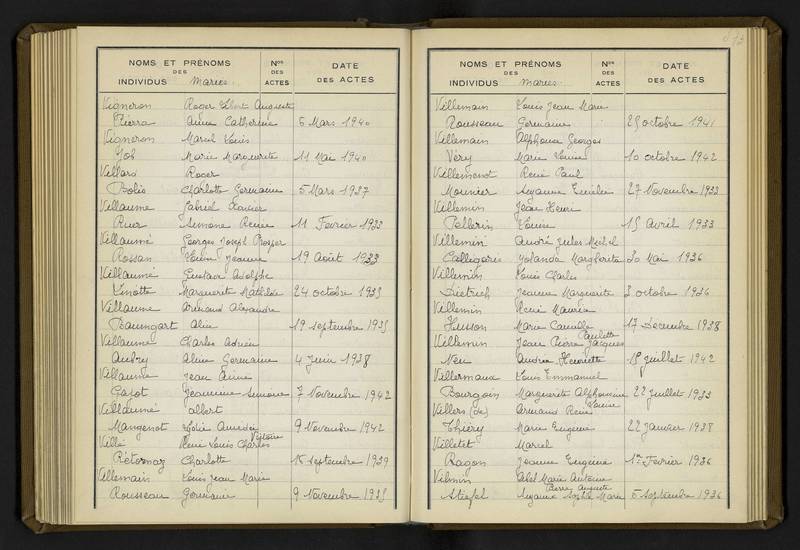 NOMS ET PRÉNOMS
DES
INDIVIDUS Mariés.
Nos
DES
ACTES
DATE
DES ACTES
Vigneron Roger Albert Auguste
Pierra Anne Catherine 6 Mars 1940
Vigneron Marcel Louis
Job Marie Marguerite 11 Mai 1940
Villard Roger
Bolis Charlotte Germaine 5 Mars 1937
Villaume Gabriel Xavier
Ruer Simone Renée 11 Fevrier 1933
Villaumé Georges Joseph Prosper
Rossan Jeanne 19 Août 1933
Villaumé Gustave Adolphe
Vinotte Marguerite Mathilde 24 octobre 1935
Villaume Armand Alexandre
Baumgart Alice 19 septembre 1935
Villaume Charles Adrien
Aubry Aline Germaine 4 Juin 1938
Villaume Jean Aimé
Gazot Jeannine Simone 7 Novembre 1942
Villaumé Albert
Mangenot 9 Novembre 1942
Victoire
Villé René Louis Charles
Rétornaz Charlotte 15 septembre 1939
Villemain Louis Jean Marie
Rousseau Germaine 9 Novembre 1935
NOMS ET PRÉNOMS
DES
INDIVIDUS Mariés.
Nos
DES
ACTES
DATE
DES ACTES
Villemain Louis Jean Marie
Rousseau Germaine 25 octobre 1941
Villemain Alphonse Georges
Véry Marie Louise 10 octobre 1942
Villemenot René Paul
Mounier Suzanne Emilie 27 Novembre 1933
Villemin Jean Henri
Pellerin Louise 15 Avril 1933
Villemin André Jules Michel
Calligaris Yolanda Margherita 30 Mai 1936
Villemin Louis Charles
Dietrich Jeanne Marguerite 3 octobre 1936
Villemin René Maurice
Husson Marie Camille 17 Decembre 1938
Paulette
Villemin Jean Pierre Jacques
Neu Andrée Henriette 18 Juillet 1942
Villermaux Louis Emmanuel
Bourgoin Marguerite Alphonsine 22 Juillet 1933
Louise
Villers (de) Armand René
Thiéry Marie Eugénie 22 Janvier 1938
Villetet Marcel
Ragon Jeanne Eugénie 1er Fevrier 1936
Vilmin Abel Marie Antoine
Pierre Auguste
Stiefel Suzanne Sophie Marie 5 Septembre 1936